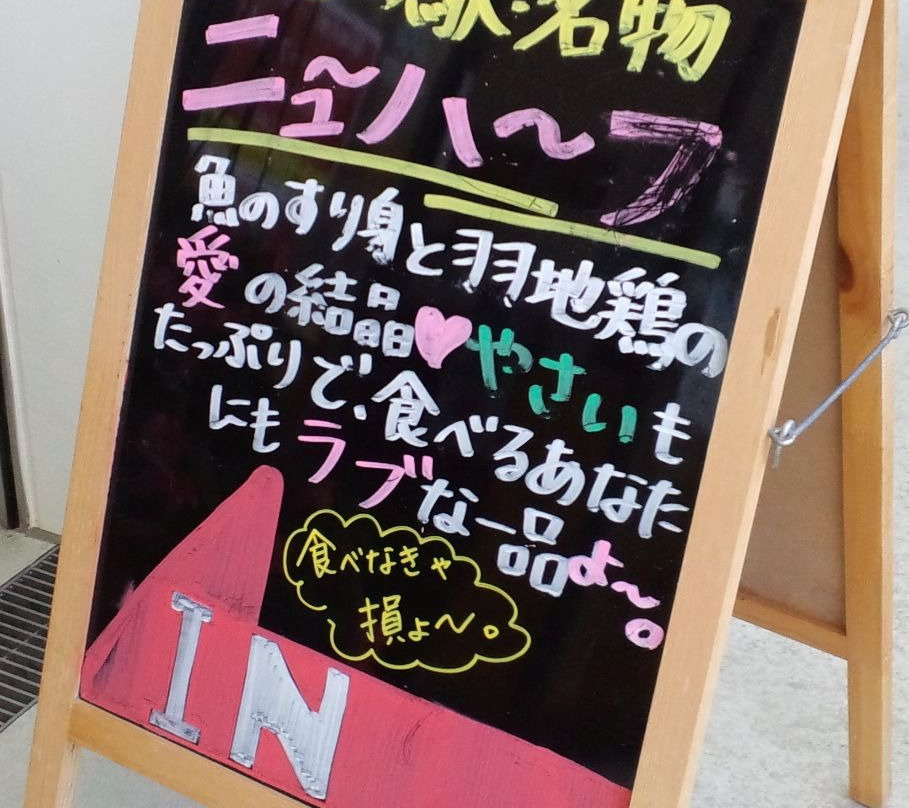 名物
ニュ〜ハ〜フ
魚のすり身と羽地鶏の
愛の結晶♥やさいも
たっぷりで、食べるあなた
にもラブな一品よ〜。
食べなきゃ
損よ〜。
IN